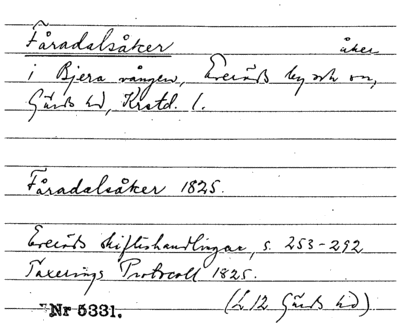 Fåradalsåker åker
i Bjera vången, Everöds by och sn,
Gärds hd, Krstd. l.
Fåradalsåker 1825.
Everöds skifteshandlingar, s. 253-292
Taxerings Protocoll 1825.
(L 12 Gärds hd)
Nr 5331.